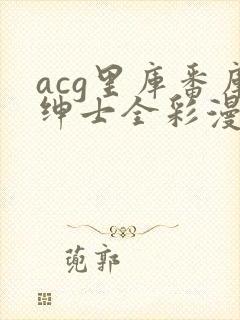 acg里库番库
绅士全彩漫
蔸郭